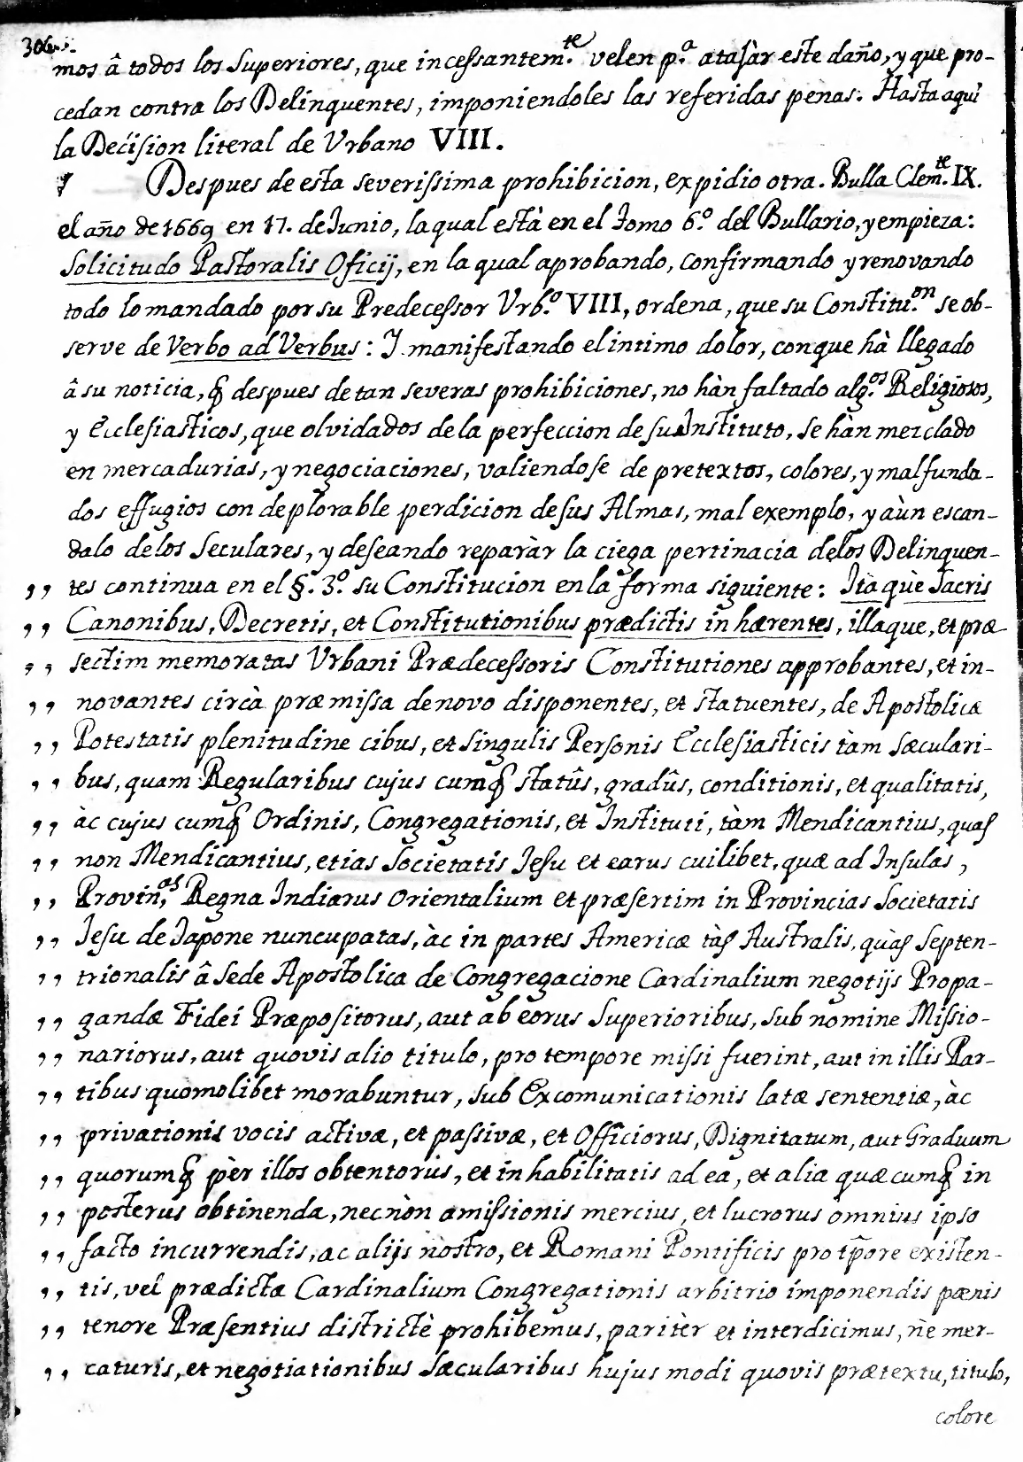 306
mos â todos los Superiores, que incessantem.te velen p.a atajàr este daño, y que pro-
cedan contra los Delinquentes, imponiendoles las referidas penas. Hasta aquì
la Decision literal de Urbano VIII.
Despues de esta severissima prohibicion, expidio otra. Bulla Clem.te IX.
el año de 1669 en 17. de Junio, la qual està en el Tomo 6.o del Bullario, y empieza:
Solicitudo Pastoralis Oficij, en la qual aprobando, confirmando y renovando
todo lo mandado por su Predecessor Urb.o VIII, ordena, que su Constitu.on se ob-
serve de Verbo ad Verbus: Y manifestando el intimo dolor, con que hà llegado
â su noticia, q̃ despues de tan severas prohibiciones, no hàn faltado alg.os Religiosos,
y Ecclesiasticos, que olvidados de la perfeccion de su Instituto, se hàn mezclado
en mercadurias, y negociaciones, valiendose de pretextos, colores, y mal funda-
dos effugios con deplorable perdicion de sus Almas, mal exemplo, y aùn escan-
dalo de los Seculares, y deseando reparàr la ciega pertinacia de los Delinquen-
,, tes continua en el §. 3.o su Constitucion en la forma siguiente: Ità què Sacris
,, Canonibus, Decretis, et Constitutionibus prædictis in hærentes, illaque, et præ
,, sectim memoratas Urbani Prædecessoris Constitutiones approbantes, et in-
,, novantes circà præmissa denovo disponentes, et statuentes, de Apostolicæ
,, Potestatis plenitudine cibus, et singulis Personis Ecclesiasticis tàm sæculari-
,, bus, quam Regularibus cujus cumq̃ statûs, gradûs, conditionis, et qualitatis,
,, àc cujus cumq̃ Ordinis, Congregationis, et Instituti, tàm Mendicantius, quas
,, non Mendicantius, etias Societatis Jesu et earus cuilibet, quæ ad Insulas,
,, Provin.as, Regna Indiarus Orientalium et præsertim in Provincias Societatis
,, Jesu de Japone nuncupatas, àc in partes Americæ tàs Australis, quàs Septen-
,, trionalis â Sede Apostolica de Congregacione Cardinalium negotijs Propa-
,, gandæ Fidei Præpositorus, aut ab eorus Superioribus, sub nomine Missio-
,, nariorus, aut quovis alio titulo, pro tempore missi fuerint, aut in illis Par-
,, tibus quomolibet morabuntur, sub Excomunicationis latæ sententiæ, àc
,, privationis vocis activæ, et passivæ, et Officiorus, Dignitatum, aut Graduum
,, quorumq̃ pèr illos obtentorus, et inhabilitatis ad ea, et alia quæcumq̃ in
,, posterus obtinenda, necnòn amissionis mercius, et lucrorus omnius ipso
,, facto incurrendis, ac alijs nostro, et Romani Pontificis pro tp̃ore existen-
,, tis, vel prædictæ Cardinalium Congregationis arbitrio imponendis pænis
,, tenore Præsentius districtè prohibemus, paritèr et interdicimus, ne mer-
,, caturis, et negotiationibus Sæcularibus hujus modi quovis prætextu, titulo,
colore